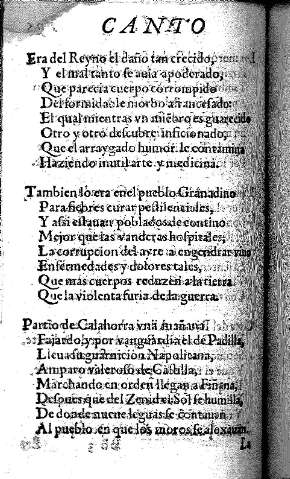 CANTO
Era del Reyno el daño tan crecido,
Y el mal tanto se auia apoderado,
Que parecia cuerpo corrompido
Del formidable morbo afrancesado:
El qual mientras vn miẽbro es guarecido
Otro y otro descubre inficionado,
Que el arraygado humor le contamina
Haziendo inutil arte y medicina.
Tambien lo era en el pueblo Granadino
Para fiebres curar pestilenciales,
Y assi estauan poblados de contino
Mejor que las vanderas hospitales,
La corrupcion del ayre a engendrar vino
Enfermedades y dolores tales,
Que mas cuerpos reduzen a la tierra
Que la violenta furia de la guerra.
Partio de Calahorra vna mañana
Fajardo, y por vanguardia el de Padilla,
Lleua su guarnicion Napolitana,
Amparo valeroso de Castilla,
Marchando en orden llegan a Fiñana,
Despues que del Zenid el Sol se humilla,
De donde nueue leguas se contauan
Al pueblo en que los moros se aloxauan.
La